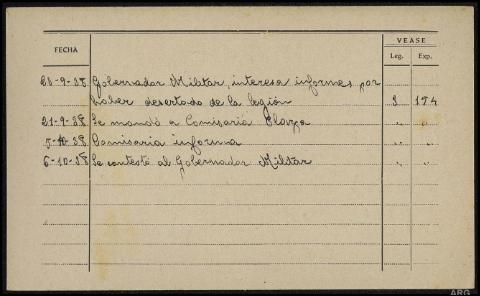 VEASE
FECHA Leg. Exp.
20-9-38 Gobernador Militar, interesa informes por
haber desertado de la legión 3 154
21-9-38 Se mandó a Comisaría
5-10-38 Comisaria informa " "
6-10-38 Se contestó al Gobernador Militar " "
ARG